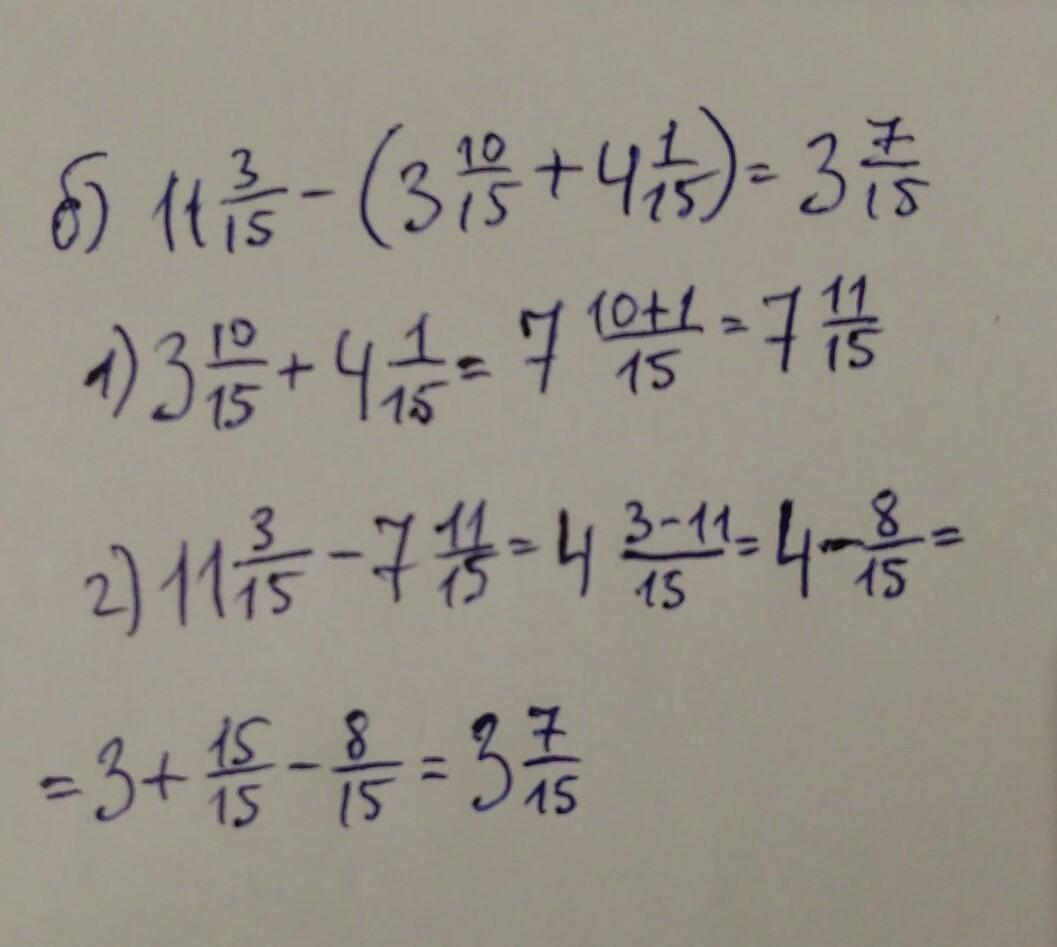 б) 11 3/15 - (3 10/15 + 4 1/15) = 3 7/15
1) 3 10/15 + 4 1/15 = 7 (10+1)/15 = 7 11/15
2) 11 3/15 - 7 11/15 = 4 (3-11)/15 = 4 - 8/15 =
= 3 + 15/15 - 8/15 = 3 7/15